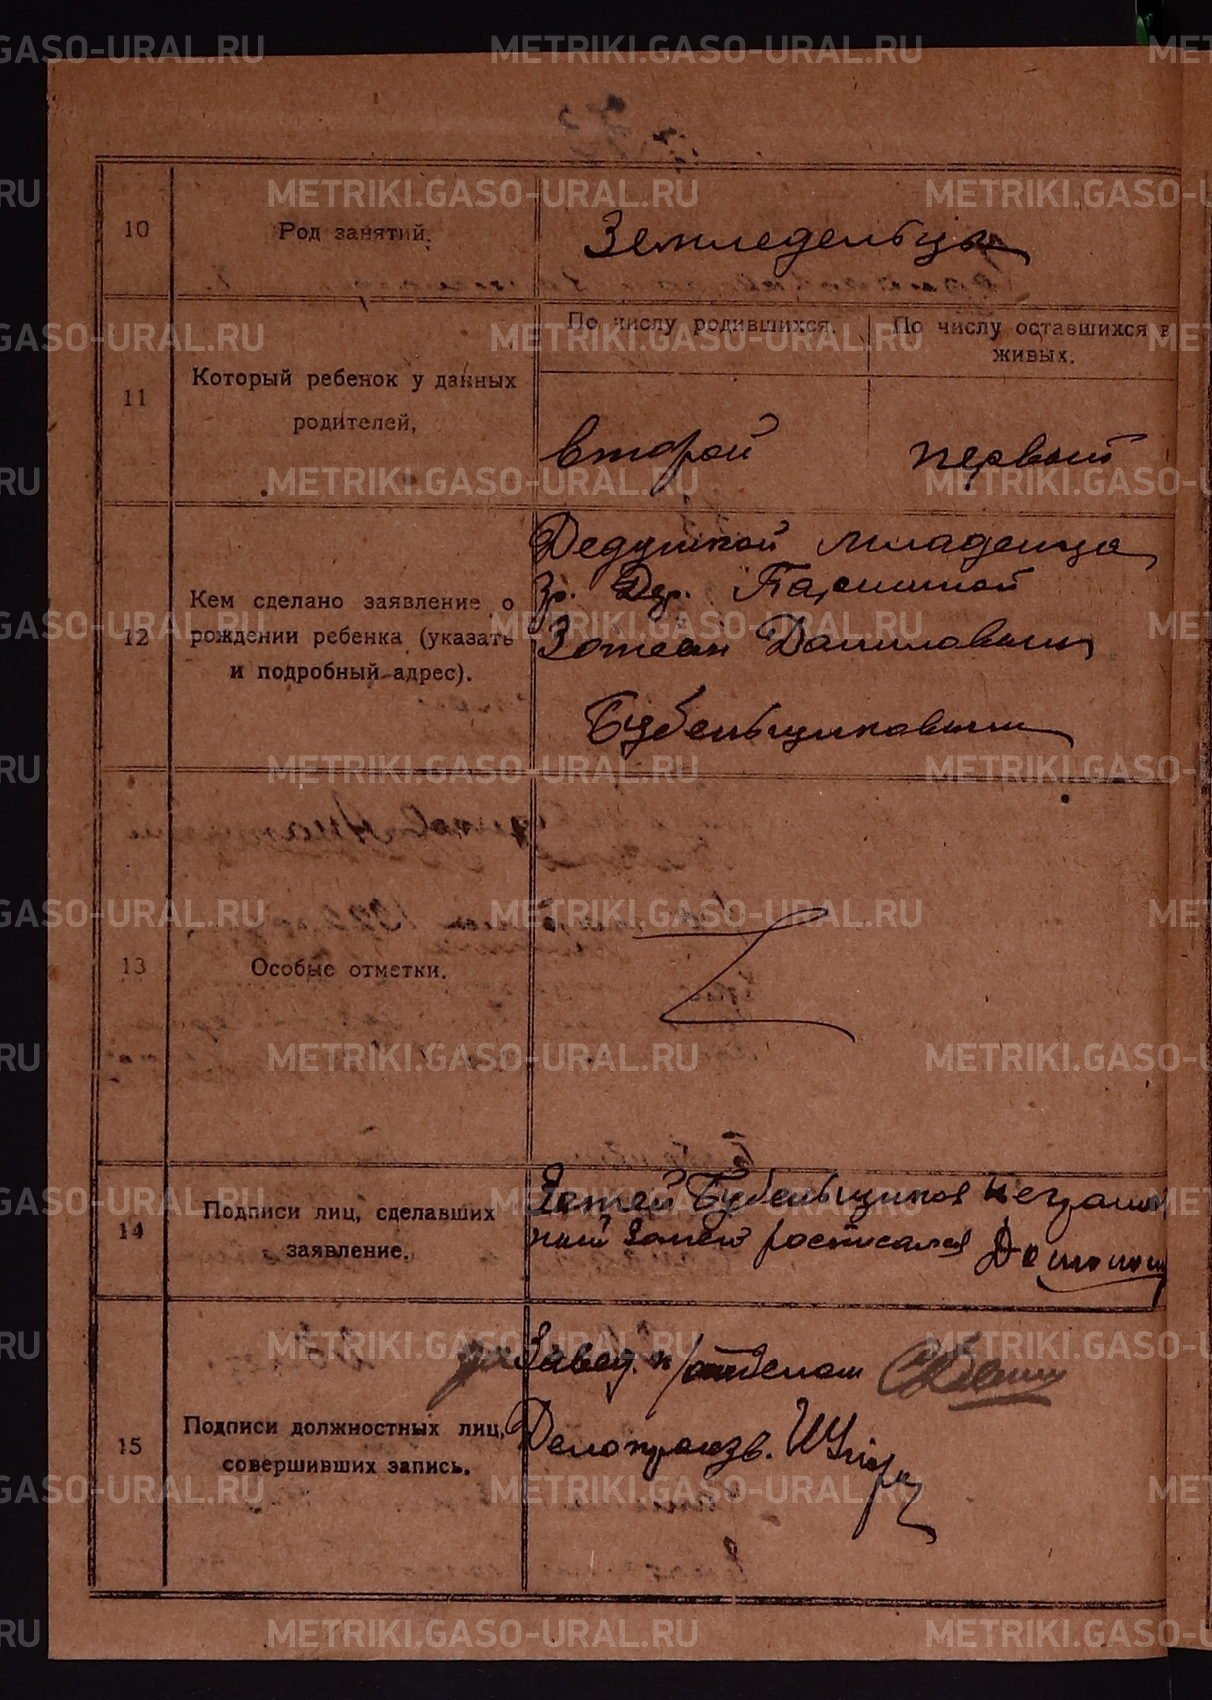 10
Род занятий.
Земледельцы
11
Который ребенок у данных
родителей,
По числу родившихся.
По числу оставшихся в
живых.
второй
первый
12
Кем сделано заявление о
рождении ребенка (указать
и подробный адрес).
Дедушкой младенца
гр. дер.
Зотеем Даниловым
Бубеньщиковым
13
Особые отметки.
14
Подписи лиц, сделавших
заявление.
Зотей Бубеньщиков неграмот
ный росписался
15
Подписи должностных лиц,
совершивших запись.
Завед. п/отделом
Делопроизв.
METRIKI.GASO-URAL.RU